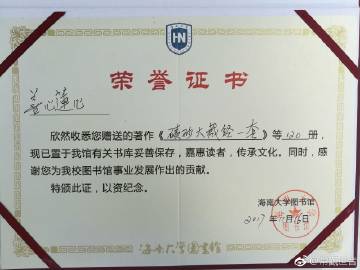 HN
荣誉证书
心莲心
欣然收悉您赠送的著作《碛砂大藏经一套》等120册，
现已置于我馆有关书库妥善保存，嘉惠读者，传承文化。同时，感
谢您为我校图书馆事业发展作出的贡献。
特颁此证，以资纪念。
海南大学图书馆
2017年 月16日
海南大学图书馆